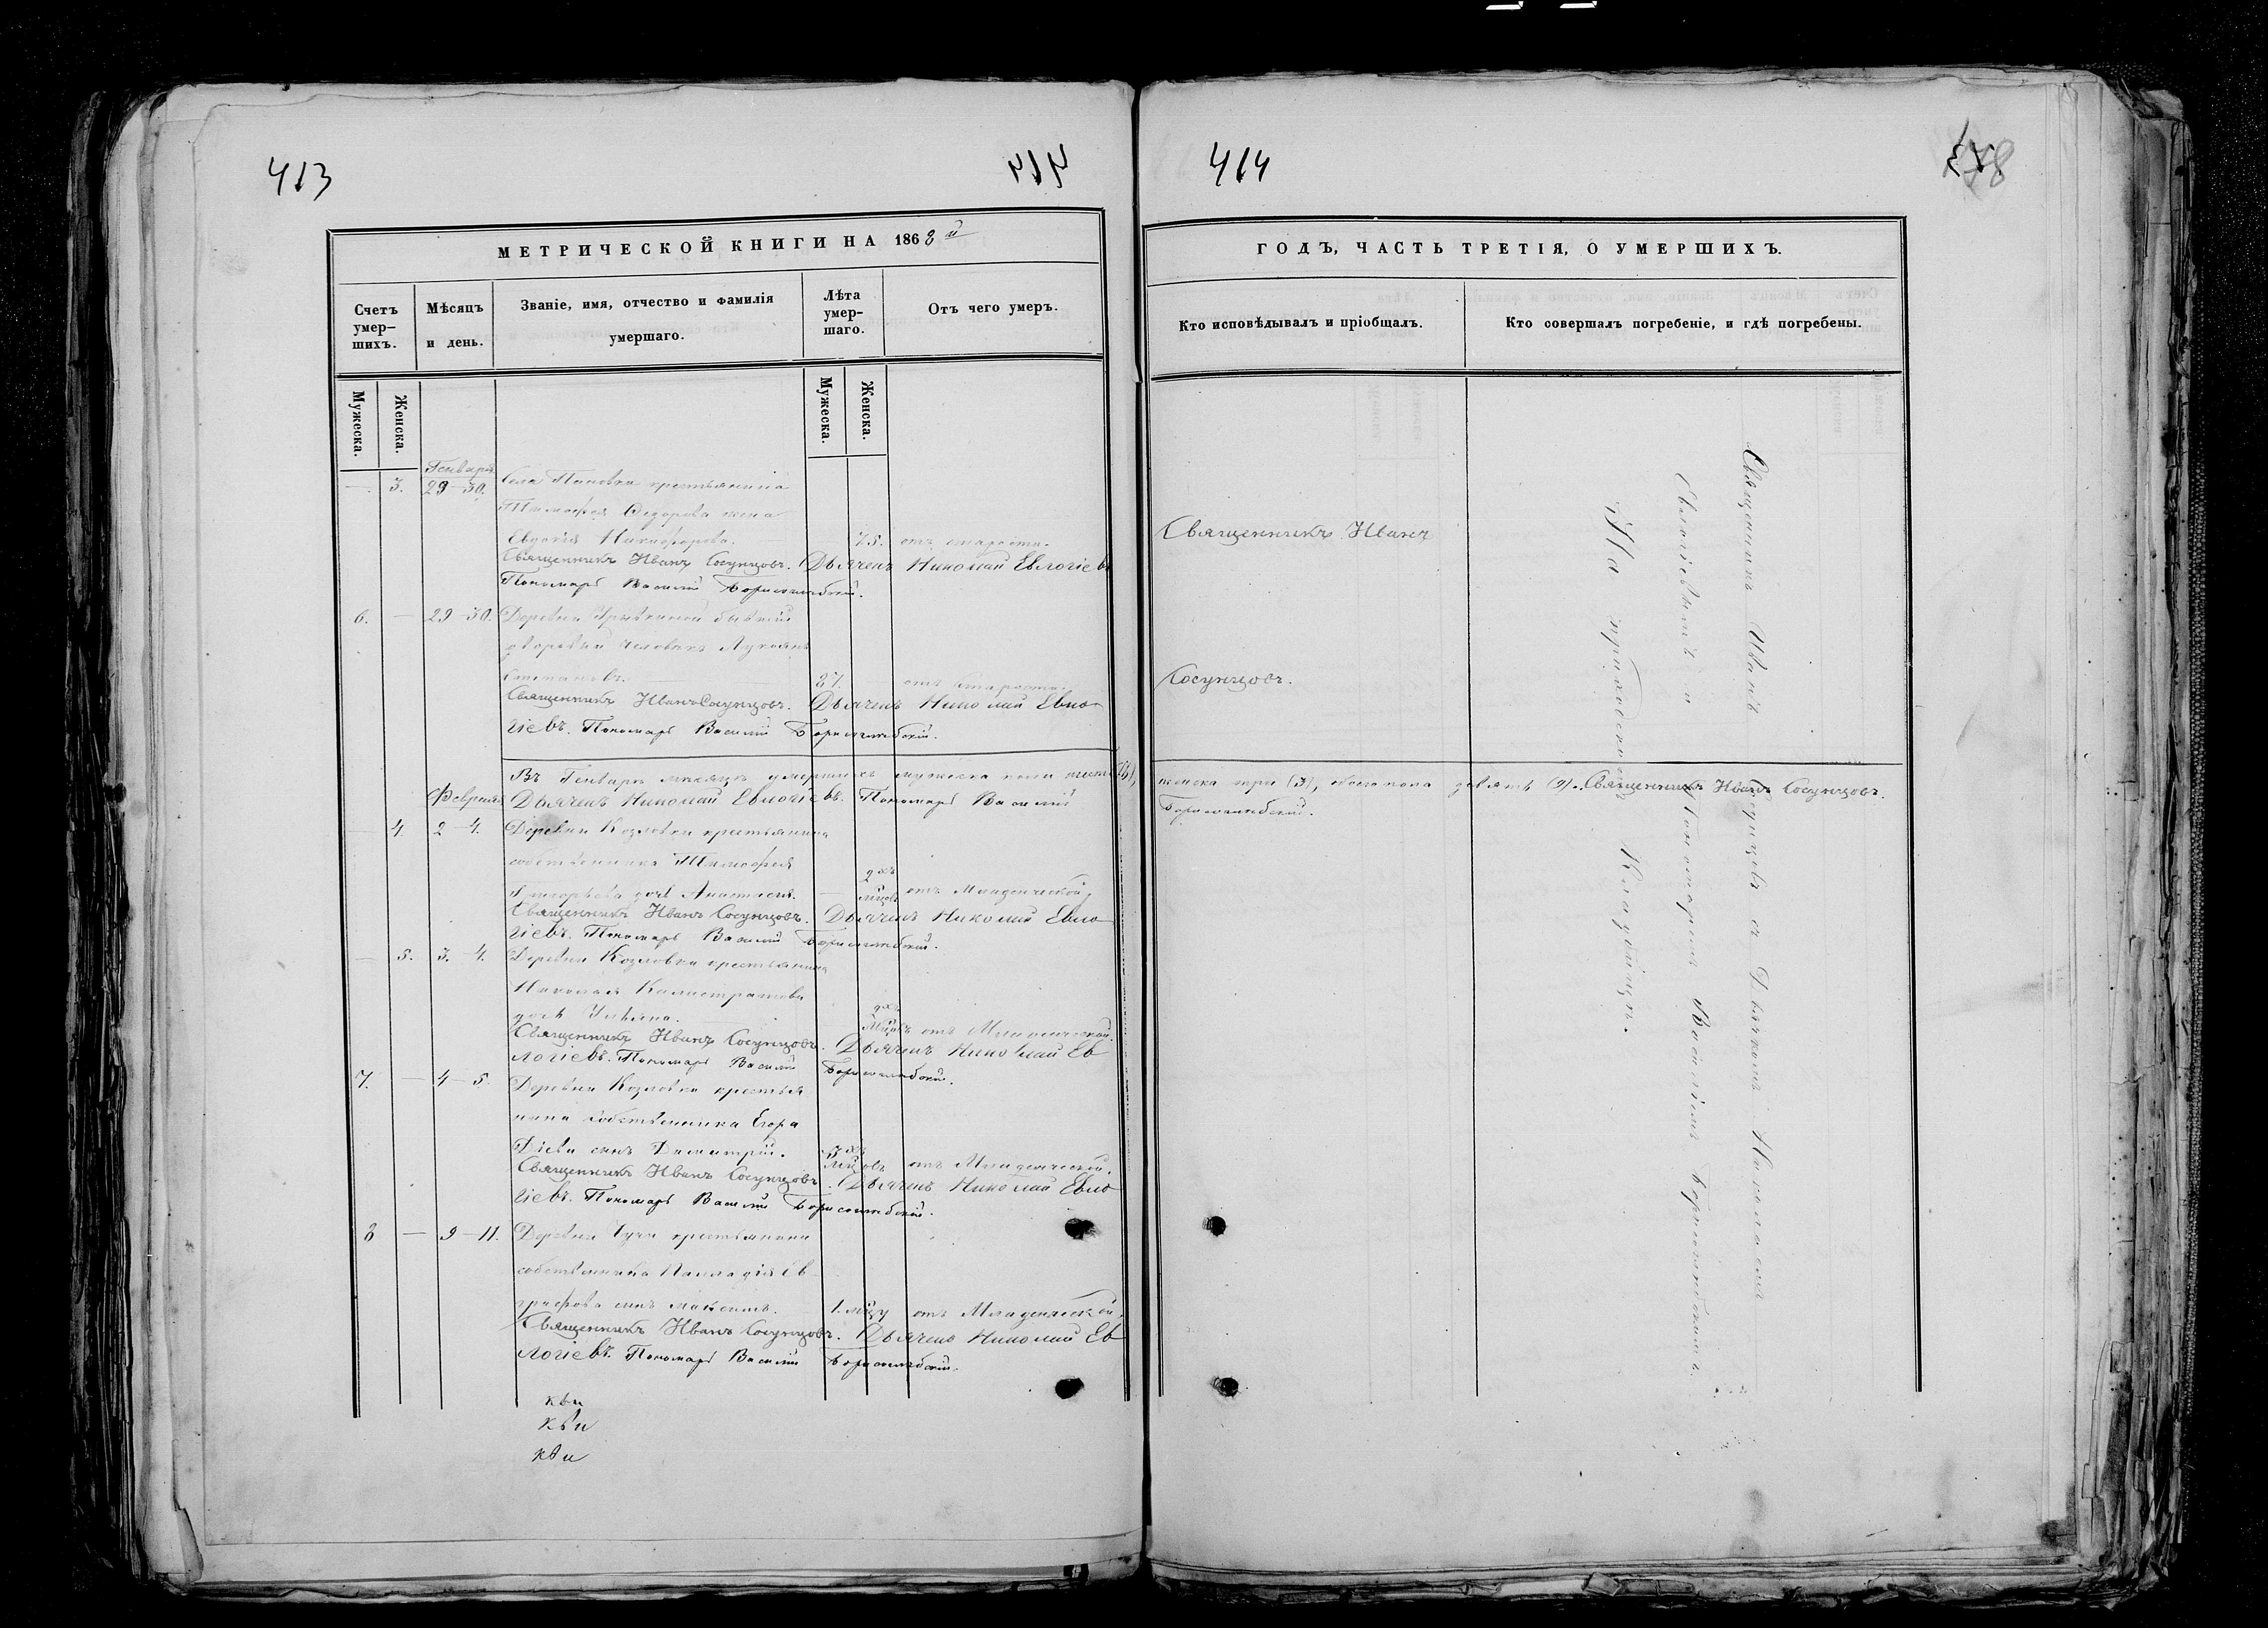 413
414
МЕТРИЧЕСКОЙ КНИГИ НА 1868 й
Счетъ умер-
шихъ.
Мѣсяцъ
и день.
Званіе, имя, отчество и фамилія
умершаго.
Лѣта
умер-
шаго.
Отъ чего умеръ.
Мужеска.
Женска.
Мужеска.
Женска.
Генваря
— 3. 29-30. Села Пановки крестьянина
Тимофея Федорова жена
Евдокія Никифорова. 75. отъ старости.
Священникъ Иванъ Сосунцовъ. Дьячекъ Николай Евлогіевъ
Пономарь Василій Борисоглебскій.
6. — 29-30. Деревни бывшій
дворовый человѣкъ Лукоянъ
87. отъ старости.
Священникъ Иванъ Сосунцовъ. Дьячекъ Николай Евло-
гіевъ. Пономарь Василій Борисоглебскій.
Въ Генварѣ мѣсяцѣ умершихъ мужеска пола шесть (6),
Февраля Дьячекъ Николай Евлогіевъ. Пономарь Василій
— 4. 2-4. Деревни Козловки крестьянина
собственника Тимофея
Григорьева дочь Анастасія. 2хъ мѣцовъ отъ Младенческой.
Священникъ Иванъ Сосунцовъ. Дьячекъ Николай Евло-
гіевъ. Пономарь Василій Борисоглебскій.
— 5. 3.-4. Деревни Козловки крестьянина
Николая Калистратова
дочь Ульяна. мѣцовъ отъ Младенческой.
Священникъ Иванъ Сосунцовъ. Дьячекъ Николай Ев
логіевъ. Пономарь Василій Борисоглебскій.
7. — 4-5. Деревни Козловки крестья
нина собственника Егора
Діева сынъ Димитрій. 3хъ мѣцовъ отъ Младенческой.
Священникъ Иванъ Сосунцовъ. Дьячекъ Николай Евло
гіевъ. Пономарь Василій Борисоглебскій.
8 — 9-11. Деревни крестьянина
собственника Палладія Ев-
графова сынъ Максимъ. 1. мѣцу отъ Младенческой.
Священникъ Иванъ Сосунцовъ. Дьячекъ Николай Ев
логіевъ. Пономарь Василій Борисоглебскій.
414
ГОДЪ, ЧАСТЬ ТРЕТІЯ, О УМЕРШИХЪ.
Кто исповѣдывалъ и пріобщалъ.
Кто совершалъ погребеніе, и гдѣ погребены.
Священникъ Иванъ
Сосунцовъ.
женска три (3), обоего пола девять (9). Священникъ Иванъ Сосунцовъ.
Борисоглебскій.
Священникъ Иванъ Сосунцовъ съ Дьячкомъ Николаемъ
Евлогіевымъ и Пономаремъ Василіемъ Борисоглебскимъ.
На приходскомъ Кладбищѣ.